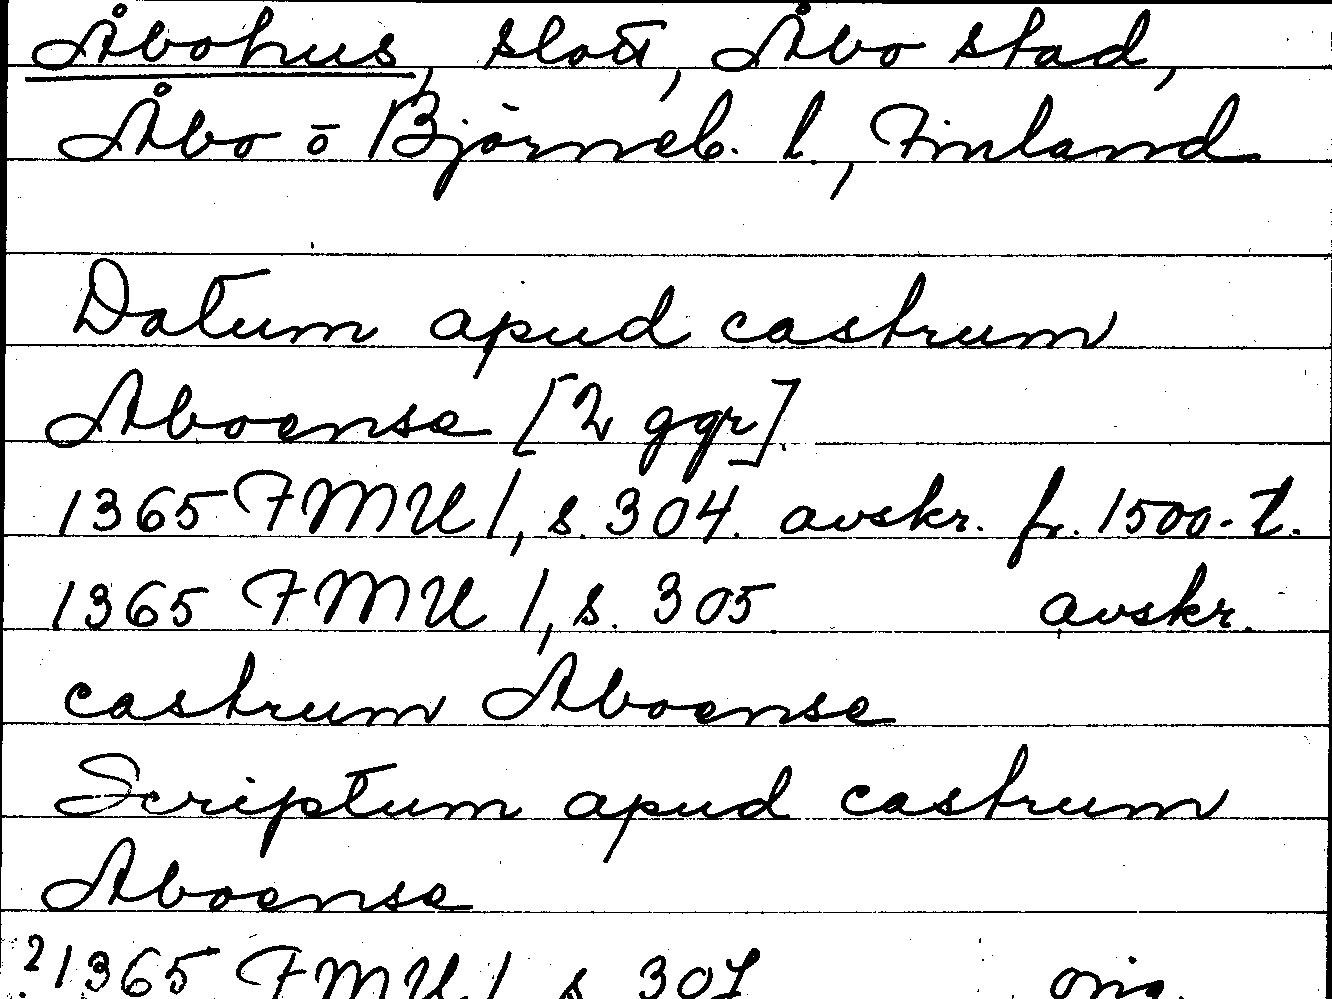 Åbohus, slott, Åbo stad,
Åbo o Björneb. l., Finland
Datum apud castrum
Aboense [2 ggr]
1365 FMU 1, s. 304. avskr. fr. 1500-t.
1365 FMU 1, s. 305 avskr.
castrum Aboense
Scriptum apud castrum
Aboense
2 1365 FMU 1 s 307 orig.